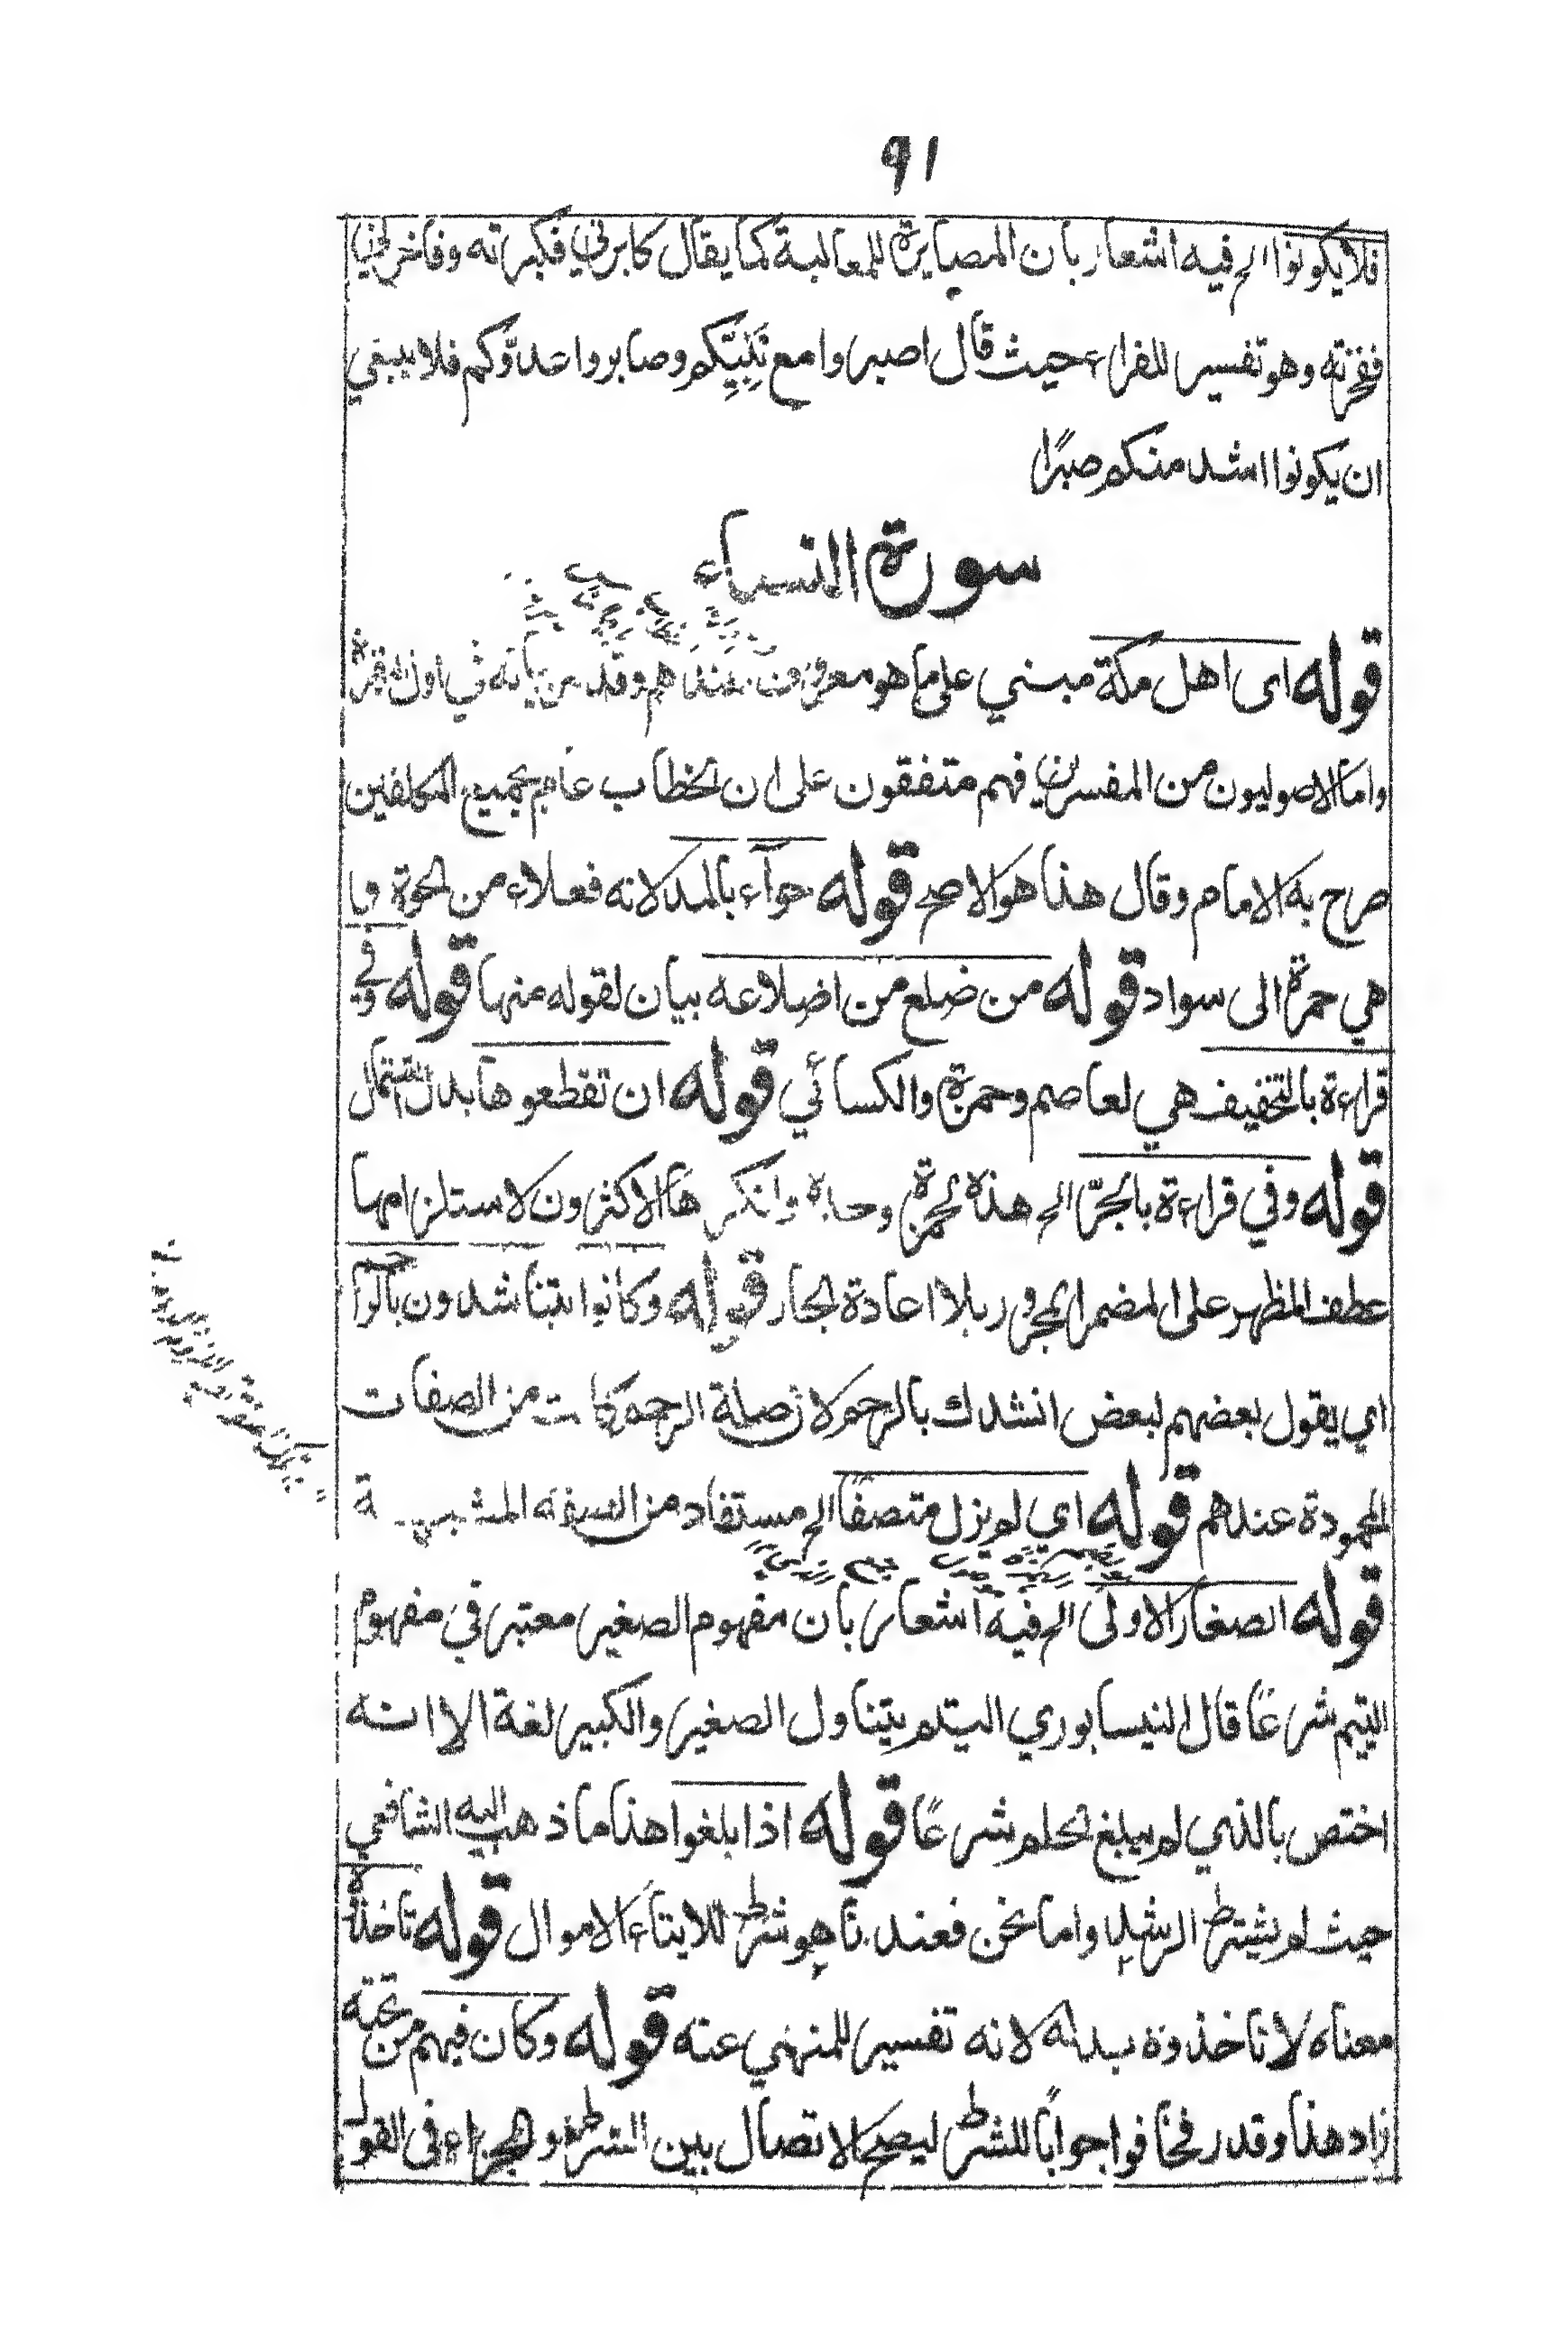 ٩١
فلا يكونوا الخ فيه اشعار بان المصابرة للمعالبة كما يقال كابرني فكبرته وفاخرني
ففخرته وهو تفسير للفراء حيث قال اصبروا مع نبيكم وصابروا عدوّكم فلا ينبغي
ان يكونوا اشد منكم صبرًا
سورة النساء
قوله اى اهل مكة مبني على ما هو معروف عندهم وقد مر بيانه في اول البقرة
واما الاصوليون من المفسرين فهم متفقون على ان الخطاب عام بجميع المكلفين
صرح به الامام وقال هذا هو الاصح قوله حوآء بالمد لانه فعلاء من الحوة و
هي حمرة الى سواد قوله من ضلع من اضلاعه بيان لقوله منها قوله وفي
قراءة بالتخفيف هي لعاصم وحمزة والكسائي قوله ان تقطعوها بدل اشتمال
قوله وفي قراءة بالجرّ الخ هذه لحمزة وحده وانكرها الاكثرون لاستلزامها
عطف المظهر على المضمر المجرور بلا اعادة الجار قوله وكانوا يتناشدون بالرحم
اي يقول بعضهم لبعض انشدك بالرحم لان صلة الرحم كانت من الصفات
المحمودة عندهم قوله اي لم يزل متصفًا الخ مستفاد من الصفة المشبهة
قوله الصغار الاولى الخ فيه اشعار بان مفهوم الصغير معتبر في مفهوم
اليتيم شرعًا قال النيسابوري اليتيم يتناول الصغير والكبير لغة الا انه
اختص بالذي لم يبلغ الحلم شرعًا قوله اذا بلغوا هذا ما ذهب اليه الشافعي
حيث لم يشترط الرشد واما نحن فعندنا هو شرط للايتاء الاموال قوله تاخذوه
معناه لا تاخذوة بدله لانه تفسير للمنهني عنه قوله وكان فيهم من تحته
زاد هذا وقدر فخافوا جوابًا للشرط ليصح الاتصال بين الشرط والجزاء وفي القول